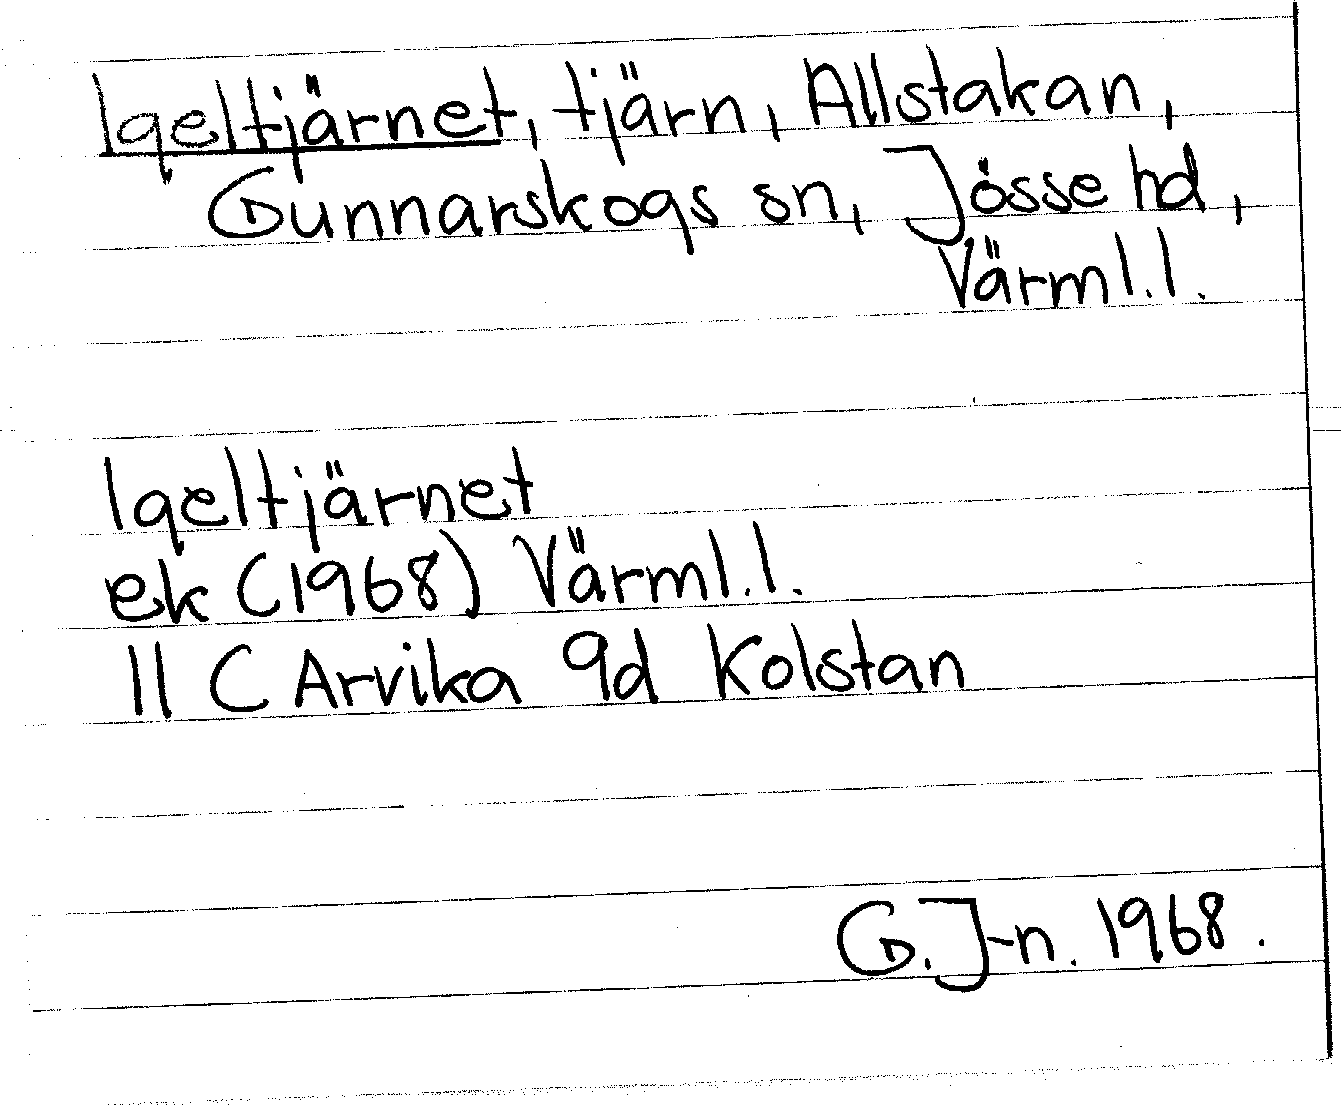 Igeltjärnet, tjärn, Allstakan,
Gunnarskogs sn, Jösse hd,
Värml.l.
Igeltjärnet
ek (1968) Värml.l.
11 C Arvika 9d Kolstan
G. J-n. 1968.